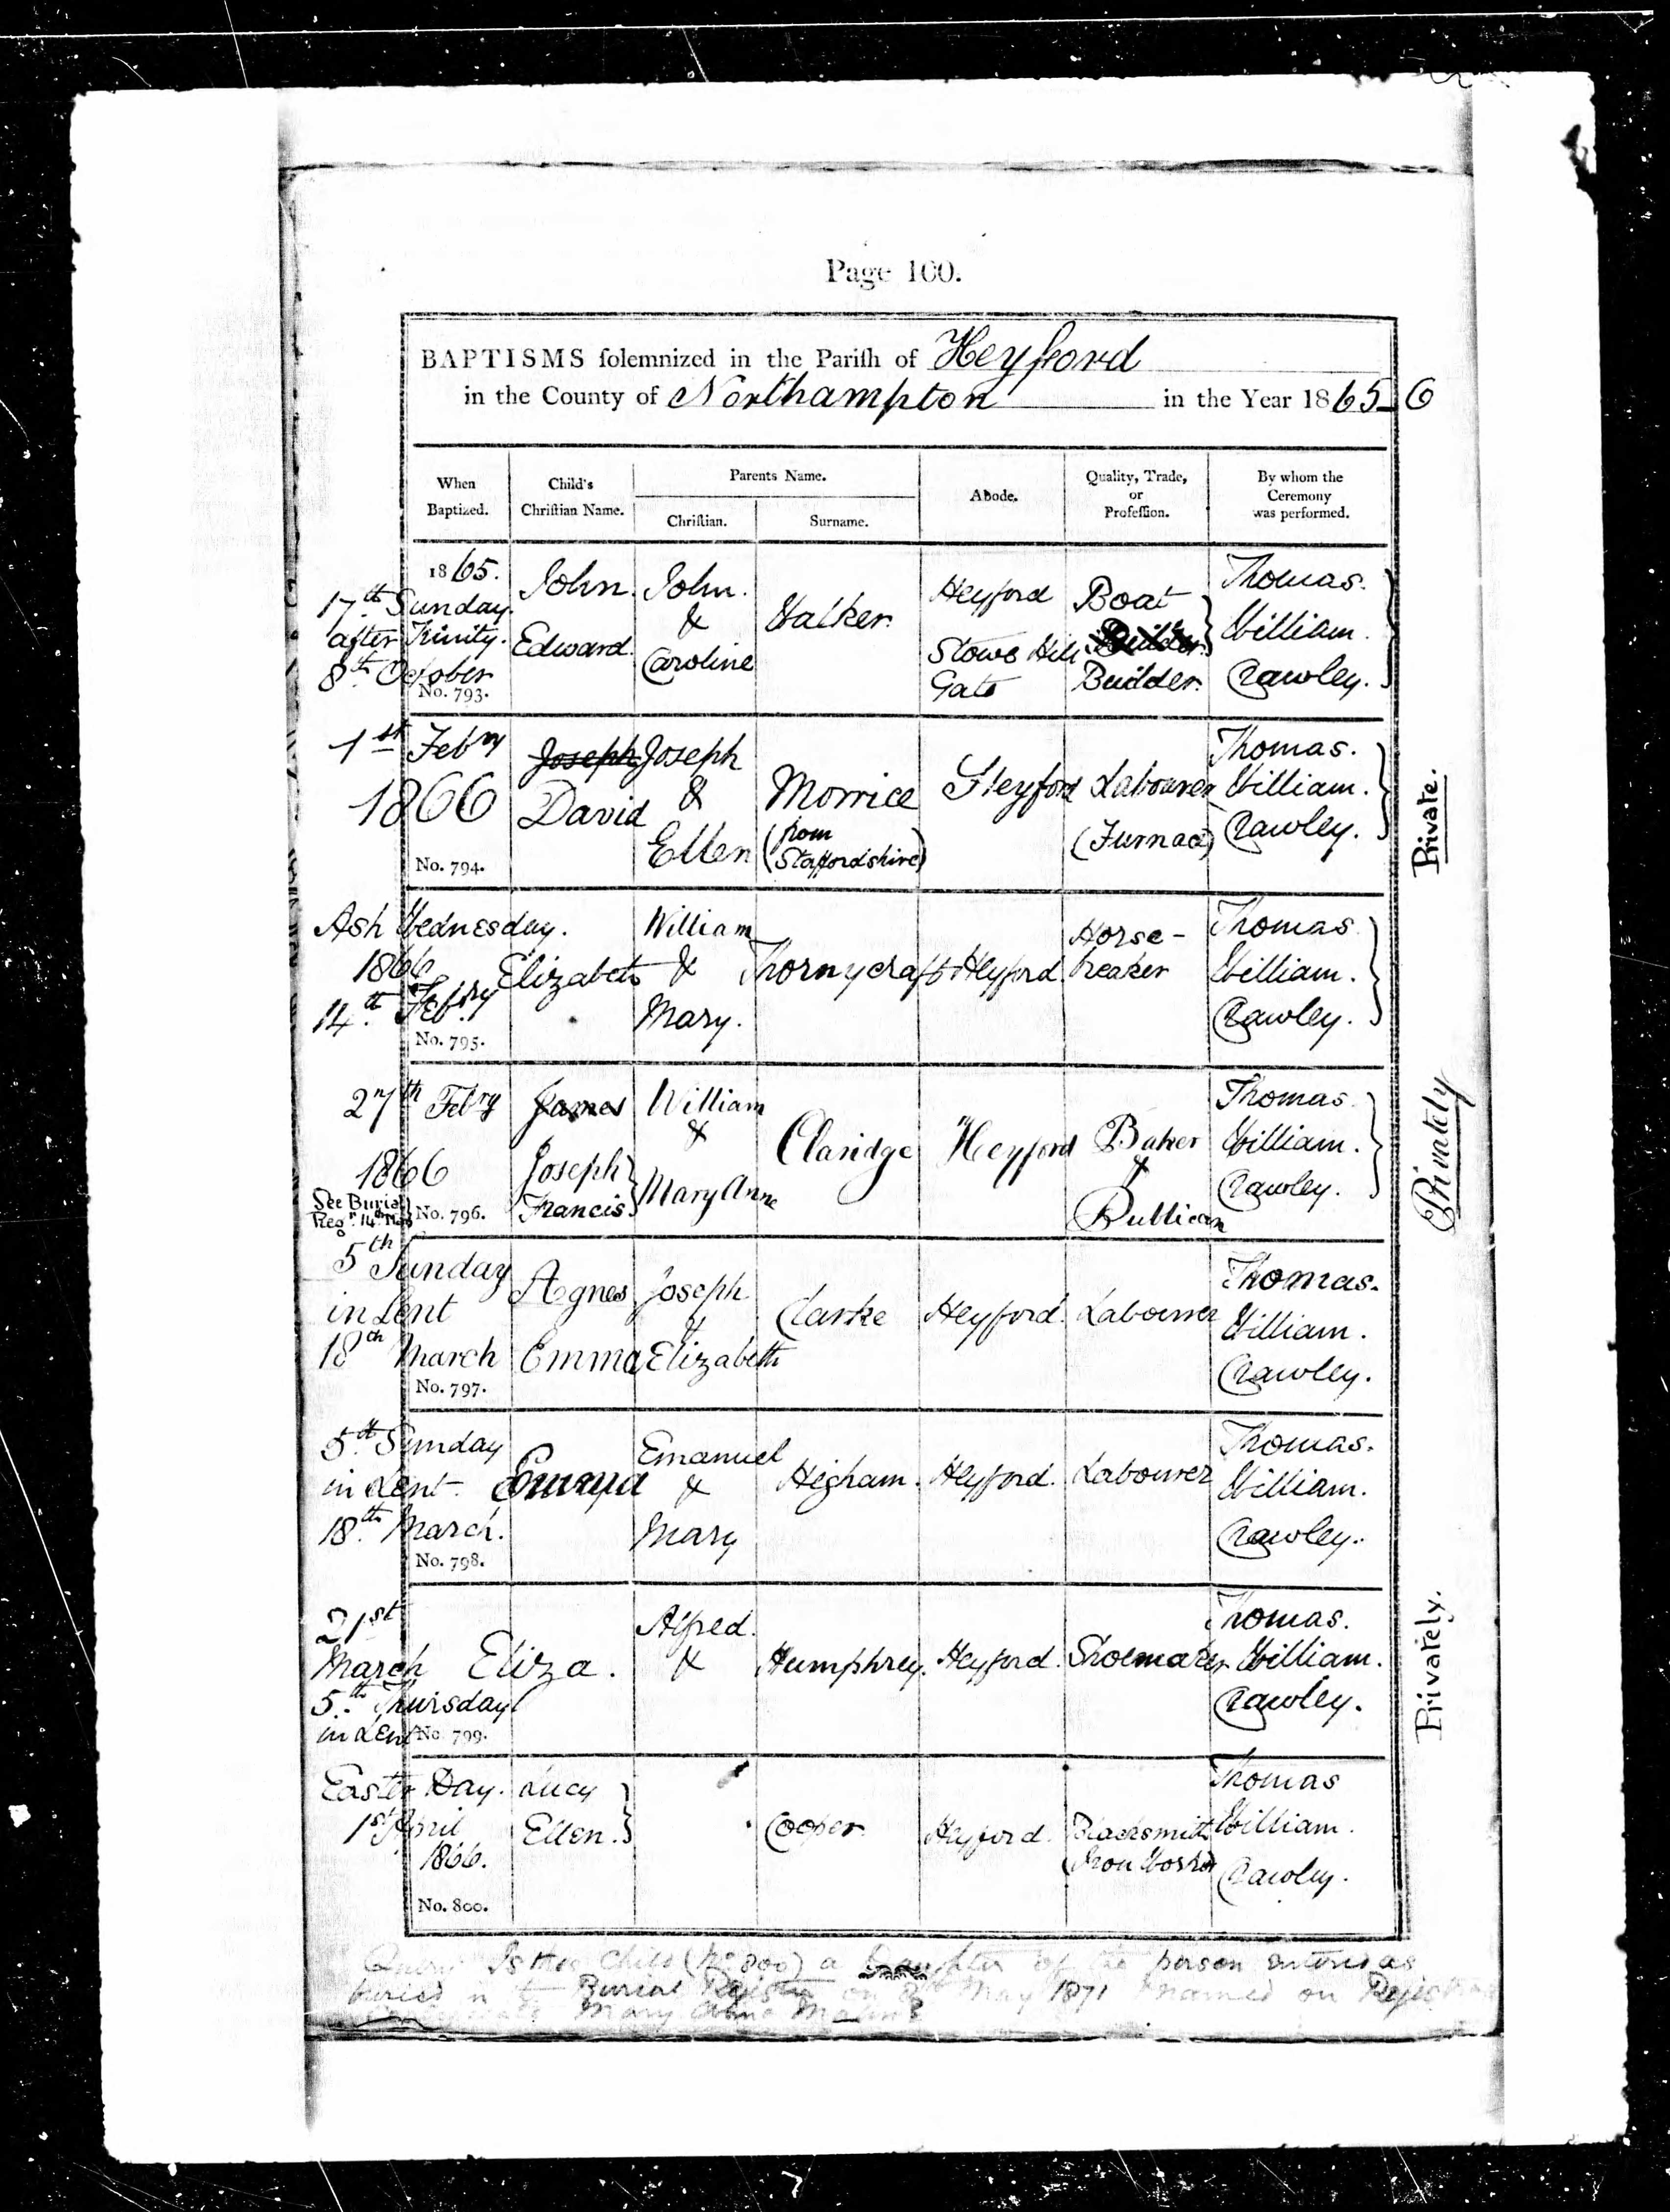 Page 100.
BAPTISMS solemnized in the Parish of Heyford
in the County of Northampton in the Year 1865-6
When Baptized.
Child's Christian Name.
Parents Name.
Christian.
Surname.
Abode.
Quality, Trade, or Profession.
By whom the Ceremony was performed.
1865.
17th Sunday
after Trinity.
8th October
No. 793.
John
Edward
John
&
Caroline
Walker
Heyford
Stowe Hill
Gate
Boat
Builder
Builder.
Thomas.
William.
Crawley.
1st Febry
1866
No. 794.
Joseph
David
Joseph
&
Ellen
Morrice
(from
Staffordshire)
Heyford
Labourer
(Furnace)
Thomas.
William.
Crawley.
Private.
Ash Wednesday.
1866
14th Febry
No. 795.
Elizabeth
William
&
Mary.
Thornycraft
Heyford
Horse-
breaker
Thomas
William.
Crawley.
27th Febry
1866
See Burial
Regr. 14th
No. 796.
James
Joseph
Francis
William
&
Mary Anne
Claridge
Heyford
Baker
&
Publican
Thomas.
William.
Crawley.
Privately
5th Sunday
in Lent
18th March
No. 797.
Agnes
Emma
Joseph
&
Elizabeth
Clarke
Heyford.
Labourer
Thomas.
William.
Crawley.
5th Sunday
in Lent.
18th March.
No. 798.
Emma
Emanuel
&
Mary
Higham.
Heyford.
Labourer
Thomas.
William.
Crawley.
21st
March
5th Thursday
in Lent
No. 799.
Eliza.
Alfred.
&
Humphrey.
Heyford.
Shoemaker
Thomas.
William.
Crawley.
Privately.
Easter Day.
1st April
1866.
No. 800.
Lucy
Ellen.
Cooper
Heyford.
Blacksmith
(Iron Works)
Thomas
William.
Crawley.
Query Is this Child (No 800) a Daughter of the person entered as
buried in the Burial Register on May 1871 & named on
Mary Anne